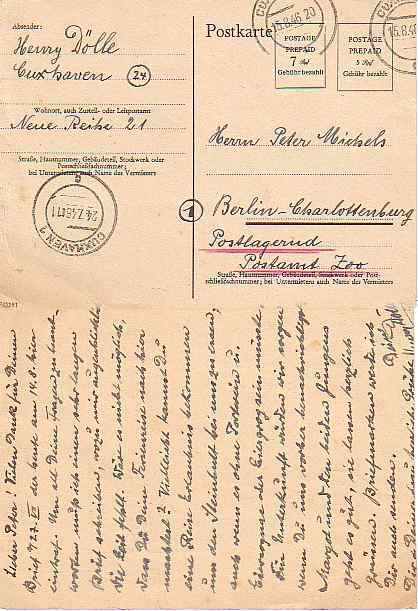 Absender:
Henry Dölle
Cuxhaven 24
Wohnort, auch Zustell- oder Leitpostamt
Neue Reihe 21
Straße, Hausnummer, Gebäudeteil, Stockwerk oder
Postschließfachnummer;
bei Untermietern auch Name des Vermieters
CUXHAVEN 1
24.7.46 11
Postkarte
15.8.46 20
POSTAGE
PREPAID
7 Pf
Gebühr bezahlt
15.8.46
POSTAGE
PREPAID
5 Pf
Gebühr bezahlt
Herrn Peter Michels
1 Berlin-Charlottenburg
Postlagernd
Postamt Zoo
Straße, Hausnummer, Gebäudeteil, Stockwerk oder Post-
schließfachnummer; bei Untermietern auch Name des Vermieters
Lieber Peter! Vielen Dank für Deinen
Brief 727. der heute am 14.8. hier
eintraf. Um all Deine Fragen zu beant-
worten muß ich einen sehr langen
Brief schreiben, wozu mir augenblicklich
die Zeit fehlt. Ist es nicht möglich,
dass Du Deine Ferienreise nach hier
machst? Vielleicht kannst Du
eine Reise Erlaubnis bekommen
um der Steinbutt bei uns zu
auch wenn es ohne
die Unterkunft würden wir sorgen
wenn Du uns vorher benachrichtigst
Margot und den beiden Jungens
geht es gut, sie lassen herzlich
grüssen. Briefmarken werde ich
Dir auch senden.